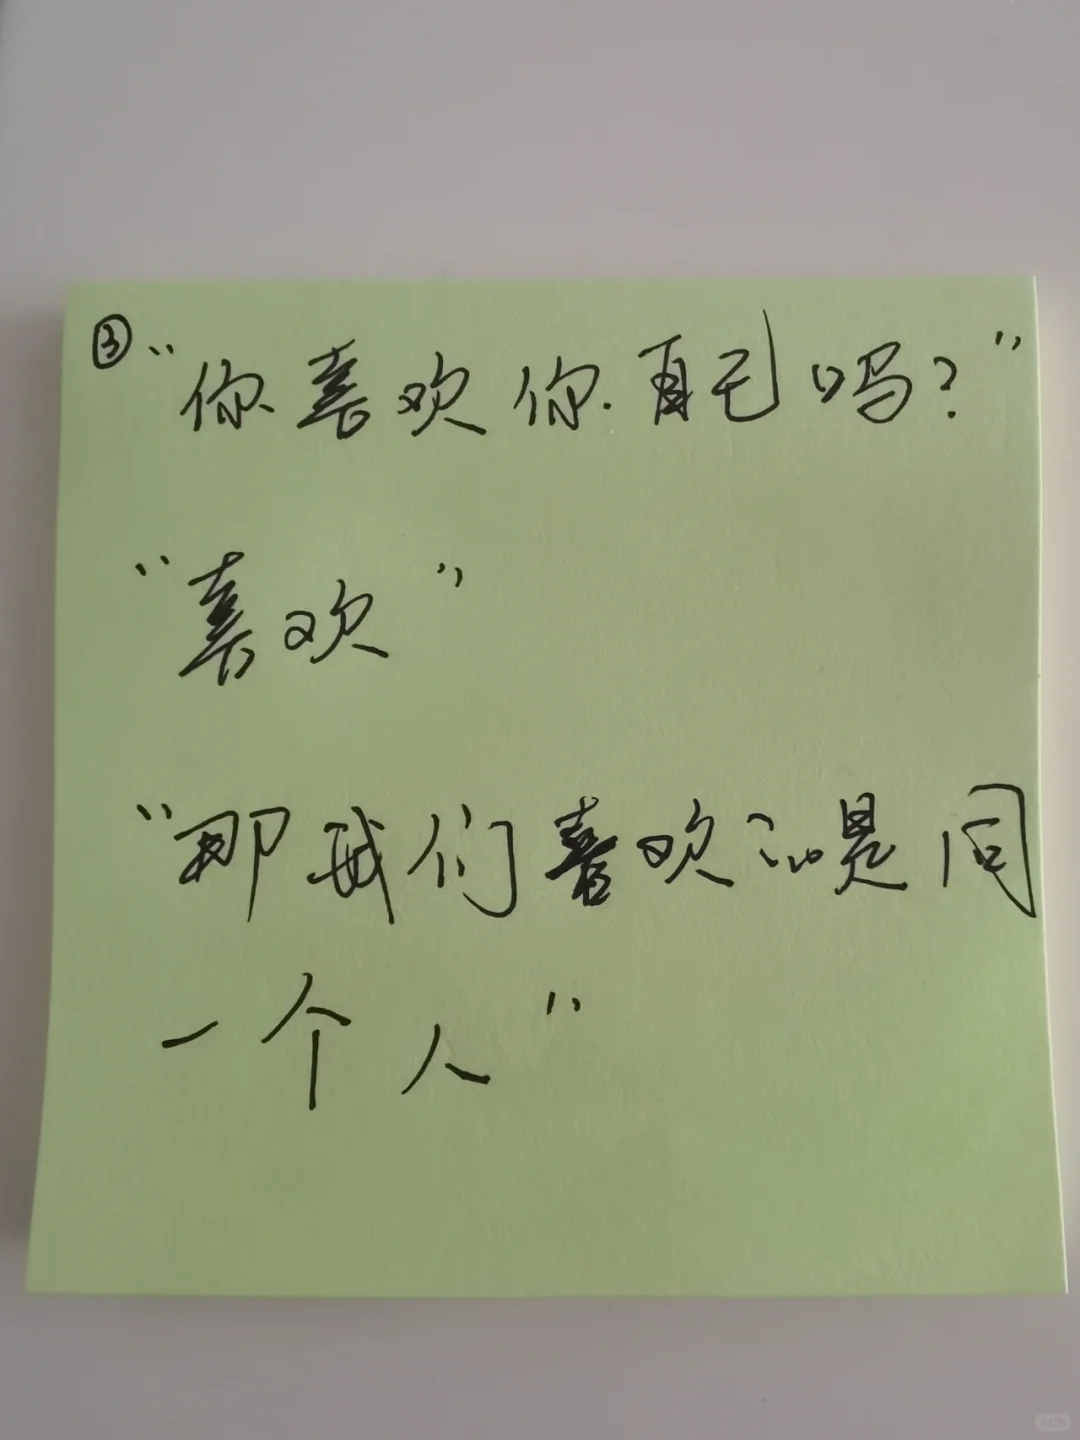 ③“你喜欢你自己吗？”
“喜欢”
“那我们喜欢的是同
一个人”